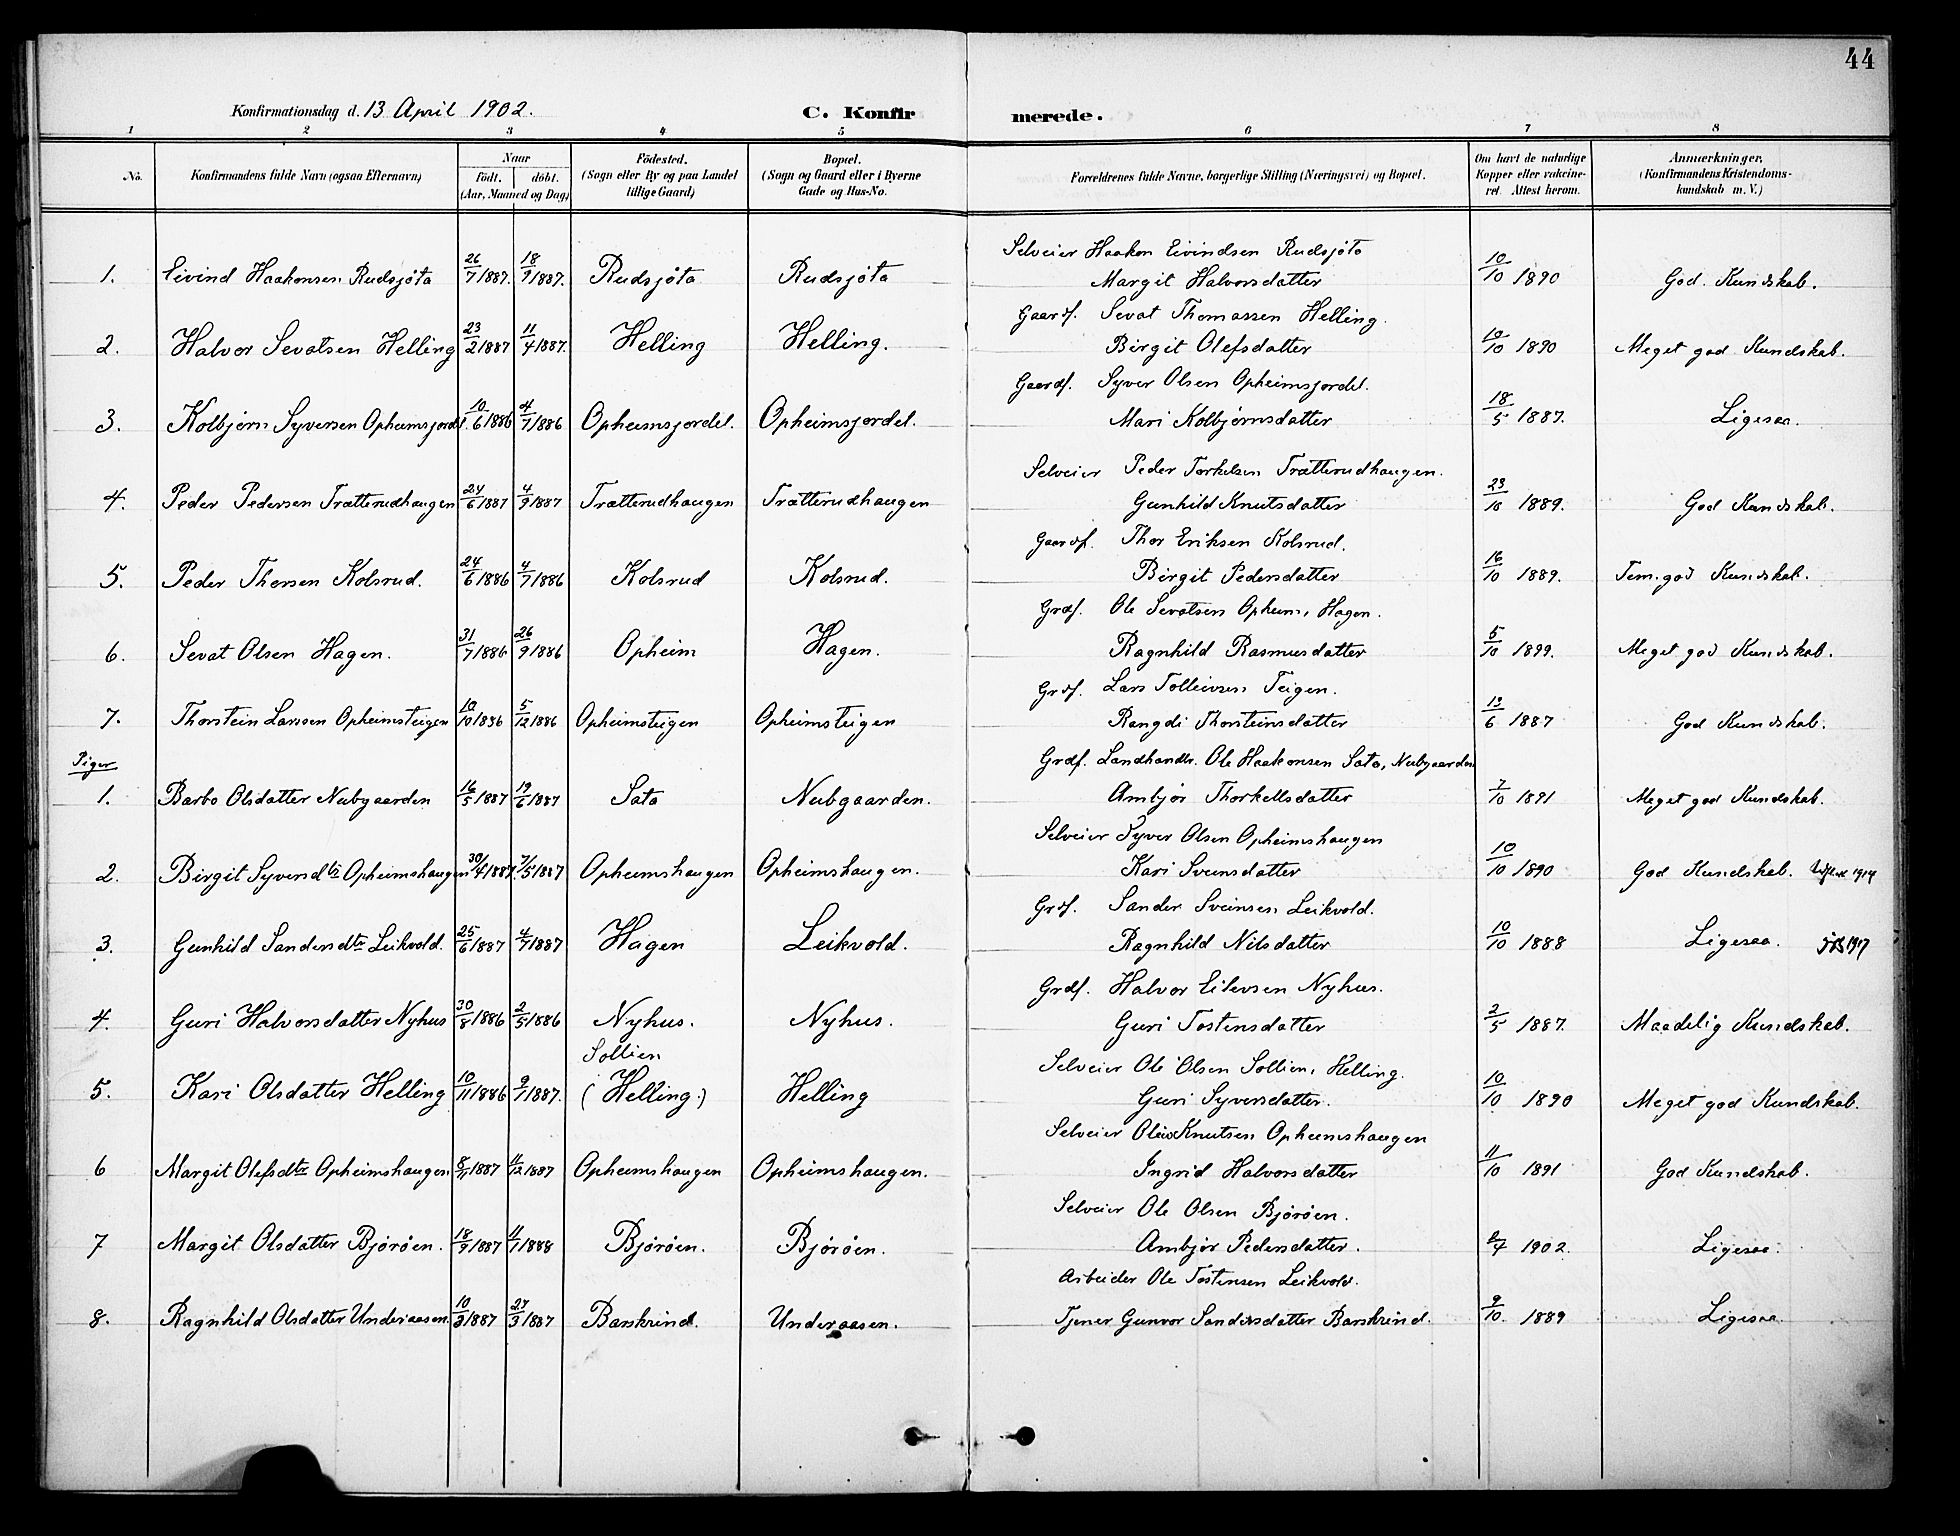 44
Konfirmationsdag d. 13 April 1902. C. Konfirmerede.
1 2 3 4 5 6 7 8
No. Konfirmandens fulde Navn (ogsaa Efternavn) Naar födt. döbt. (Aar, Maaned og Dag) Födested. (Sogn eller By og paa Landet tillige Gaard) Bopæl. (Sogn og Gaard eller i Byerne Gade og Hus-No. Forældrenes fulde Navne, borgerlige Stilling (Næringsvei) og Bopæl. Om havt de naturlige Kopper eller vakcineret. Attest herom. Anmærkninger, (Konfirmandens Kristendomskundskab m. V.)
Selveier Haakon Eivindsen Rudsjöta
1. Eivind Haakonsen Rudsjöta 26/7 1887. 18/9 1887. Rudsjöta Rudsjöta Margit Halvorsdatter 10/10 1890 God Kundskab.
Gaardf. Sevat Thomassen Helling.
2. Halvor Sevatsen Helling 23/2 1887 11/4 1887. Helling Helling. Birgit Olefsdatter 10/10 1890 Meget god Kundskab.
Gaardf. Syver Olsen Opheimsjordet.
3. Kolbjørn Syversen Opheimsjordet. 10/6 1886 4/7 1886 Opheimsjordet. Opheimsjordet. Mari Kolbjørnsdatter 18/5 1887. Ligesaa.
Selveier Peder Torkelsen Trætterudhaugen.
4. Peder Pedersen Trætterudhaugen 24/6 1887 4/9 1887 Trætterudhaugen Trætterudhaugen Gunhild Knutsdatter 23/10 1889. God Kundskab.
Gaardf. Thor Eriksen Kolsrud.
5. Peder Thorsen Kolsrud. 24/6 1886 4/7 1886 Kolsrud Kolsrud. Birgit Pedersdatter 16/10 1889. Tem. god Kundskab.
Grdf. Ole Sevatsen Opheim, Hagen.
6. Sevat Olsen Hagen. 31/7 1886 26/9 1886 Opheim Hagen. Ragnhild Rasmusdatter 5/10 1899. Meget god Kundskab.
Grdf. Lars Tolleivsen Teigen.
7. Thorstein Larssen Opheimsteigen 10/10 1886 5/12 1886 Opheimsteigen Opheimsteigen Rangdi Thorsteinsdatter 13/6 1887 God Kundskab.
Piger
Grdf. Landhandlr. Ole Haakonsen Sata, Nubgaarden
1. Barbo Olsdatter Nubgaarden 16/5 1887 19/6 1887 Sata Nubgaarden. Ambjør Thorkellsdatter 7/10 1891 Meget god Kundskab.
Selveier Syver Olsen Opheimshaugen
2. Birgit Syversdtr Opheimshaugen 30/4 1887. 7/5 1887 Opheimshaugen Opheimshaugen. Kari Sveinsdatter 10/10 1890 God Kundskab. 1914
Grdf. Sander Sveinsen Leikvold.
3. Gunhild Sandersdtr Leikvold. 25/6 1887 4/7 1887 Hagen Leikvold. Ragnhild Nilsdatter 10/10 1888 Ligesaa. 1917
Grdf. Halvor Eilevsen Nyhus.
4. Guri Halvorsdatter Nyhus 30/8 1886 2/5 1886 Nyhus. Nyhus. Guri Tostensdatter 2/5 1887. Maadelig Kundskab.
Sollien Selveier Ole Olsen Sollien, Helling.
5. Kari Olsdatter Helling 10/11 1886 9/1 1887. (Helling.) Helling Guri Syversdatter. 10/10 1890 Meget god Kundskab.
Selveier Knutsen Opheimshaugen
6 Margit Olefsdtr Opheimshaugen 8/11 1887 11/12 1887 Opheimshaugen Opheimshaugen. Ingrid Halvorsdatter 11/10 1891 God Kundskab.
Selveier Ole Olsen Björöen.
7 Margit Olsdatter Björöen. 18/9 1887 11/1 1888 Björöen. Björöen. Ambjör Pedersdatter. 2/4 1902. Ligesaa.
Arbeider Ole Tostensen Leikvold.
8. Ragnhild Olsdatter Underaasen 10/3 1887 27/3 1887 Barskrind. Underaasen. Tjener Gunvor Sandersdatter Barskrind. 9/10. 1889 Ligesaa.